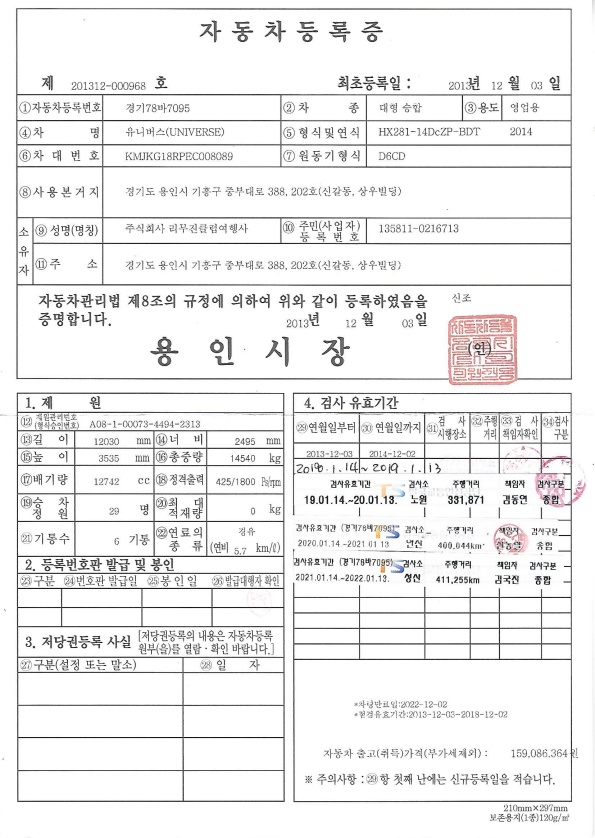 자동차등록증
제 201312-000968 호 최초등록일 : 2013년 12 월 03 일
①자동차등록번호 경기78바7095 ②차 종 대형 승합 ③용도 영업용
④차 명 유니버스(UNIVERSE) ⑤형식및연식 HX281-14DcZP-BDT 2014
⑥차대번호 KMJKG18RPEC008089 ⑦원동기형식 D6CD
⑧사용본거지 경기도 용인시 기흥구 중부대로 388, 202호(신갈동, 상우빌딩)
소유자 ⑨성명(명칭) 주식회사 리무진클럽여행사 ⑩주민(사업자)등록번호 135811-0216713
⑪주 소 경기도 용인시 기흥구 중부대로 388, 202호(신갈동, 상우빌딩)
자동차관리법 제8조의 규정에 의하여 위와 같이 등록하였음을 신조
증명합니다. 2013년 12 월 03일
용인시장 (인)
1. 제 원
⑫제원관리번호(형식승인번호) A08-1-00073-4494-2313
⑬길 이 12030 mm ⑭너 비 2495 mm
⑮높 이 3535 mm ⑯총중량 14540 kg
⑰배기량 12742 cc ⑱정격출력 425/1800 Ps/rpm
⑲승차정원 29 명 ⑳최대적재량 0 kg
㉑기통수 6 기통 ㉒연료의종류 경유 (연비 5.7 km/ℓ)
2. 등록번호판 발급 및 봉인
㉓구분 ㉔번호판 발급일 ㉕봉인일 ㉖발급대행자 확인
3. 저당권등록 사실 [저당권등록의 내용은 자동차등록
원부(을)를 열람·확인 바랍니다.]
㉗구분(설정 또는 말소) ㉘일 자
4. 검사 유효기간
㉙연월일부터 ㉚연월일까지 ㉛검사시행장소 ㉜주행거리 ㉝검사책임자확인 ㉞검사구분
2013-12-03 2014-12-02
2018.1.14~2019.1.13
검사유효기간 검사소 주행거리 책임자 검사구분
19.01.14~20.01.13. TS 노원 331,871 김동연 종합
검사유효기간 (경기78바7095) 검사소 주행거리 책임자 검사구분
2020.01.14.~2021.01.13 TS 400,044km 종합
검사유효기간 (경기78바7095) 검사소 주행거리 책임자 검사구분
2021.01.14.~2022.01.13. TS 성산 411,255km 김국진 종합
*차령만료일:2022-12-02
*점검유효기간:2013-12-03~2018-12-02
자동차 출고(취득)가격(부가세제외) : 159,086,364원
※ 주의사항 : ㉙항 첫째 난에는 신규등록일을 적습니다.
210mm×297mm
보존용지(1종)120g/㎡